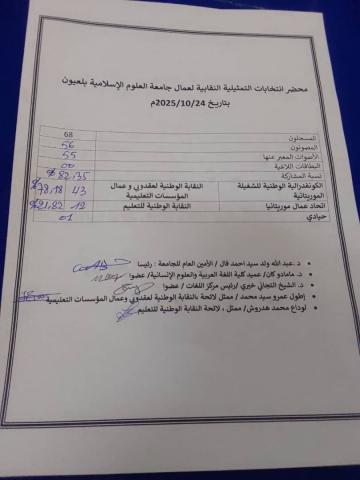 محضر انتخابات التمثيلية النقابية لعمال جامعة العلوم الإسلامية بلعيون
بتاريخ 2025/10/24م
المسجلون 68
المصوتون 56
الأصوات المعبر عنها 55
البطاقات اللاغية 00
نسبة المشاركة 82,35%
الكونفدرالية الوطنية للشغيلة الموريتانية
النقابة الوطنية لعقدوي وعمال المؤسسات التعليمية
43 78,18%
اتحاد عمال موريتانيا النقابة الوطنية للتعليم 12 21,82%
حيادي 01
د. عبد الله ولد سيد احمد فال / الأمين العام للجامعة : رئيسا
د. مامادو كان/ عميد كلية اللغة العربية والعلوم الإنسانية/ عضوا
د. الشيخ التجاني خيري /رئيس مركز اللغات / عضوا
إطول عمرو سيد محمد / ممثل لائحة بالنقابة الوطنية لعقدوي وعمال المؤسسات التعليمية
لوداع محمد هدروش/ ممثل ، لائحة النقابة الوطنية للتعليم